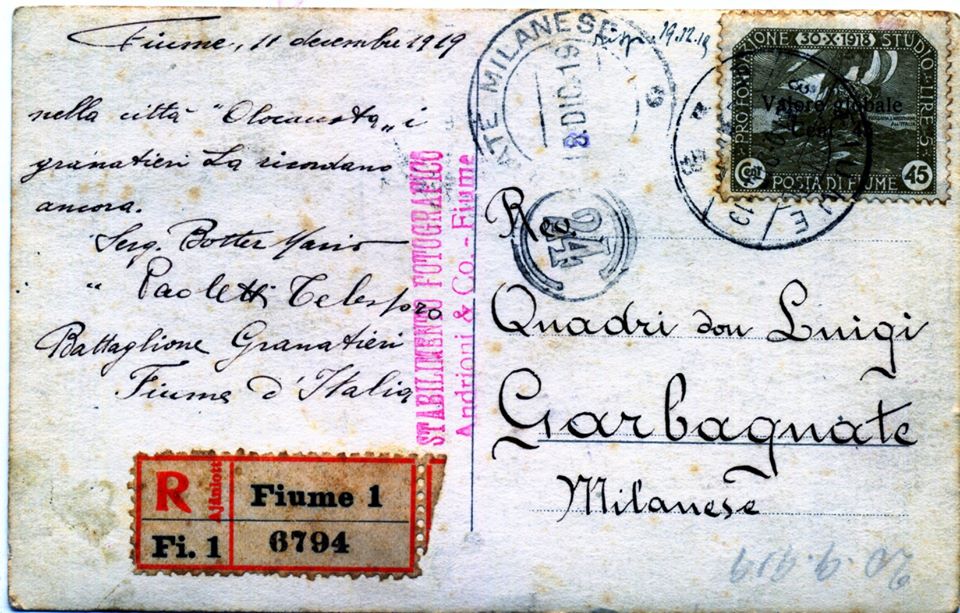 Fiume, 11 decembre 1919
nella città "Olocausta" i
granatieri La ricordano
ancora.
Serg. Botter Mario
" Paoletti Telesforo
Battaglione Granatieri
Fiume d'Italia
STABILIMENTO FOTOGRAFICO
Andrioni & Co. - Fiume
R
Ajánlott
Fiume 1
Fi. 1
6794
ATE MILANESE
8 DIC 19
Risp. 19.12.19
PRO FONDAZIONE 30·X·1918 STUDIO: LIRE 5
Valore globale
Cent. 45
POSTA DI FIUME
Rev.
Quadri don Luigi
Garbagnate
Milanese
20.9.919